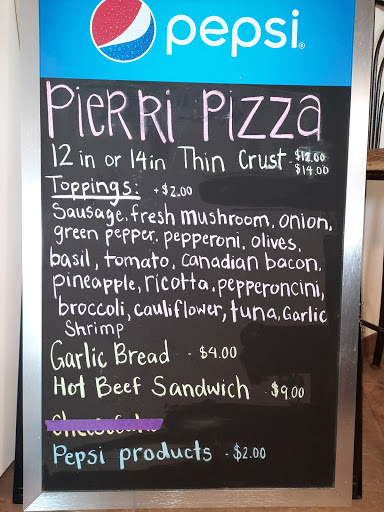 pepsi
PIERRI PIZZA
12 in or 14in Thin Crust - $12.00
$14.00
Toppings: + $2.00
Sausage, fresh mushroom, onion,
green pepper, pepperoni, olives,
basil, tomato, canadian bacon,
pineapple, ricotta, pepperoncini,
broccoli, cauliflower, tuna, Garlic
Shrimp
Garlic Bread - $4.00
Hot Beef Sandwich $9.00
Pepsi products - $2.00